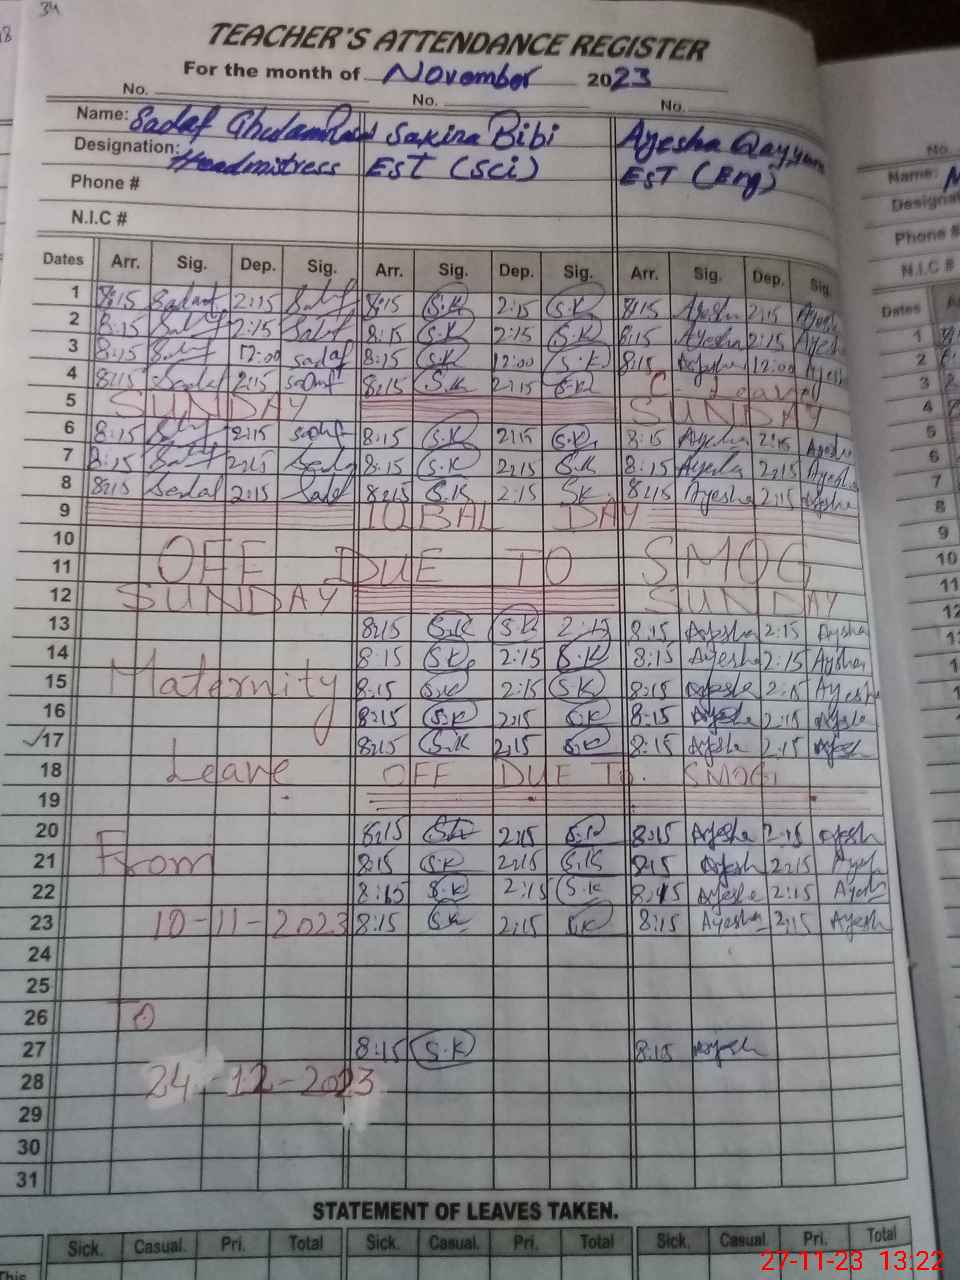 34
TEACHER'S ATTENDANCE REGISTER
For the month of November 2023
No. No. No.
Name: Sadaf Ghulam Sakina Bibi Ayesha Qayyum
Designation: Headmistress EST (Sci) EST (Eng)
Phone #
N.I.C #
Dates Arr. Sig. Dep. Sig. Arr. Sig. Dep. Sig. Arr. Sig. Dep. Sig.
1 8:15 Sadaf 2:15 8:15 S.K 2:15 S.K 8:15 Ayesha 2:15 Ayesha
2 8:15 2:15 Sadaf 8:15 S.K 2:15 S.K 8:15 Ayesha 2:15 Ayesha
3 8:15 12:00 sadaf 8:15 S.K 12:00 S.K 8:15 Ayesha 12:00 Ayesha
4 8:15 2:15 8:15 S.K 2:15 S.K C. Leave
5 SUNDAY SUNDAY
6 8:15 2:15 8:15 S.K 2:15 S.K 8:15 Ayesha 2:15 Ayesha
7 8:15 2:15 8:15 S.K 2:15 S.K 8:15 Ayesha 2:15 Ayesha
8 8:15 2:15 8:15 S.K 2:15 S.K 8:15 Ayesha 2:15 Ayesha
9 IQBAL DAY
10
11 OFF DUE TO SMOG
12 SUNDAY SUNDAY
13 8:15 S.K S.K 2:15 8:15 Ayesha 2:15 Ayesha
14 8:15 S.K 2:15 S.K 8:15 Ayesha 2:15 Ayesha
15 Maternity 8:15 S.K 2:15 S.K 8:15 Ayesha 2:15 Ayesha
16 8:15 S.K 2:15 S.K 8:15 Ayesha 2:15 Ayesha
17 8:15 S.K 2:15 S.K 8:15 Ayesha 2:15 Ayesha
18 Leave OFF DUE To SMOG
19
20 8:15 S.K 2:15 S.K 8:15 Ayesha 2:15 Ayesha
21 From 8:15 S.K 2:15 S.K 8:15 Ayesha 2:15
22 8:15 S.K 2:15 S.K 8:15 Ayesha 2:15
23 10-11-2023 8:15 S.K 2:15 S.K 8:15 Ayesha 2:15 Ayesha
24
25
26 TO
27 8:15 S.K 8:15 Ayesha
28 24-12-2023
29
30
31
STATEMENT OF LEAVES TAKEN.
Sick. Casual. Pri. Total Sick. Casual. Pri. Total Sick. Casual Pri. Total
This
27-11-23 13:22
No.
Name:
Phone #
N.I.C #
Dates
1
2
3
4
5
6
7
8
9
10
11
12